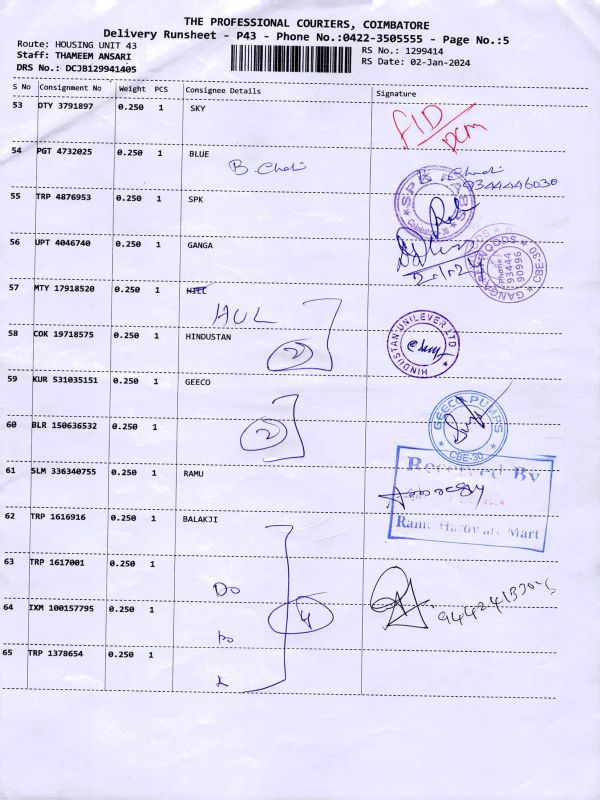 THE PROFESSIONAL COURIERS, COIMBATORE
Delivery Runsheet - P43 - Phone No.:0422-3505555 - Page No.:5
Route: HOUSING UNIT 43
Staff: THAMEEM ANSARI
DRS No.: DCJB129941405
RS No.: 1299414
RS Date: 02-Jan-2024
S No Consignment No Weight PCS Consignee Details Signature
53 OTY 3791897 0.250 1 SKY
FID/DCM
54 PGT 4732025 0.250 1 BLUE
9344446030
55 TRP 4876953 0.250 1 SPK
SPK
Coimbatore-30
56 UPT 4046740 0.250 1 GANGA
Phone:
93444
90996
CBE-30
57 MTY 17918520 0.250 1 HILL
HUL
58 COK 19718575 0.250 1 HINDUSTAN
2
HINDUSTAN UNILEVER LTD
59 KUR 531035151 0.250 1 GEECO
GEECO PUMPS
CBE-30
60 BLR 150636532 0.250 1
2
61 SLM 336340755 0.250 1 RAMU
Received By
Mart
62 TRP 1616916 0.250 1 BALAKJI
63 TRP 1617001 0.250 1
Do
64 IXM 100157795 0.250 1
4
Do
65 TRP 1378654 0.250 1